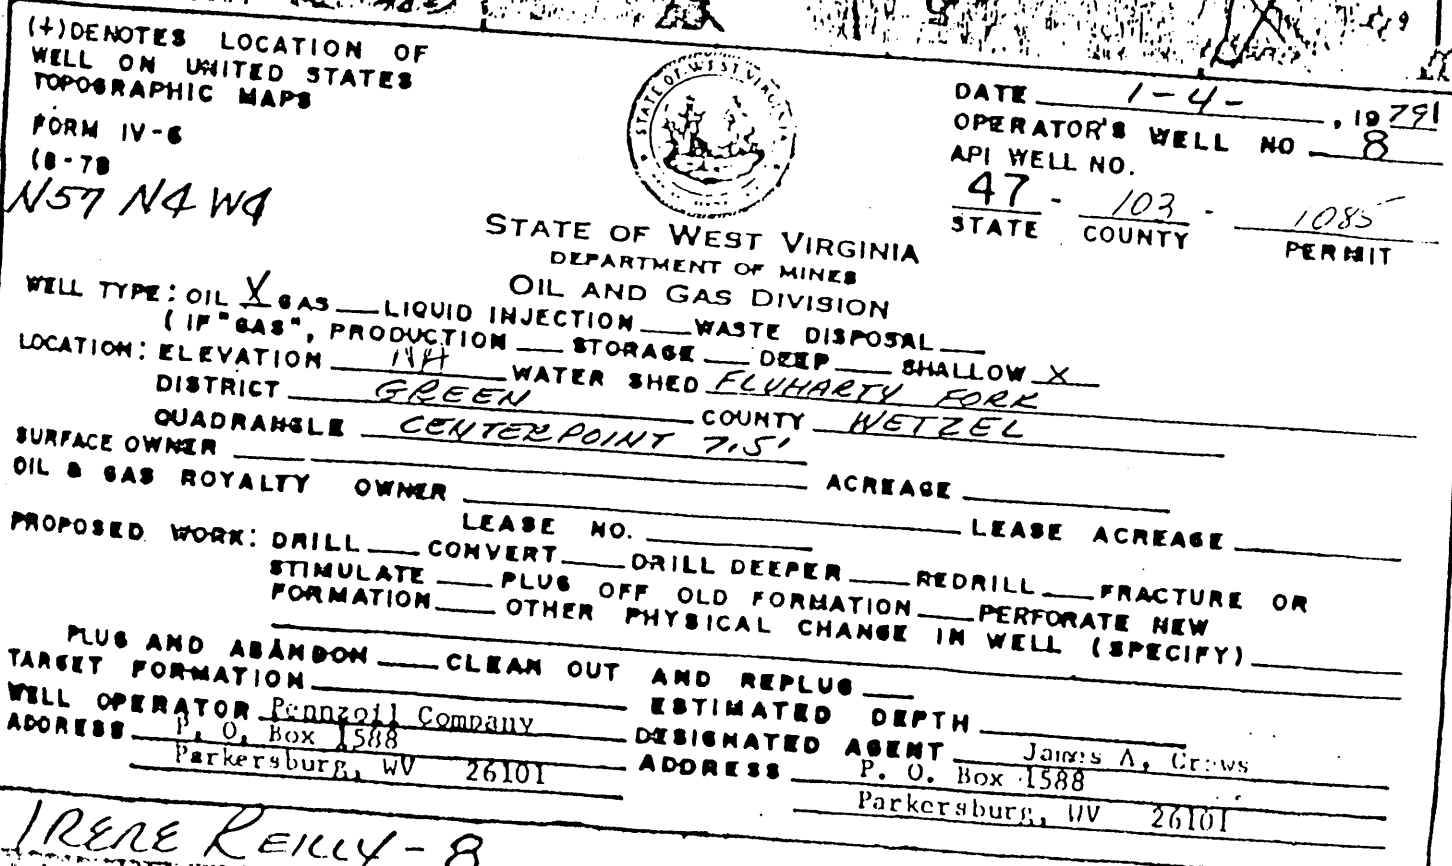 (+) DENOTES LOCATION OF
WELL ON UNITED STATES
TOPOGRAPHIC MAPS
FORM IV-6
(8-78
N57 N4 W4
STATE OF WEST VIRGINIA
STATE OF WEST VIRGINIA
DEPARTMENT OF MINES
OIL AND GAS DIVISION
DATE 1-4- , 1979
OPERATOR'S WELL NO 8
API WELL NO.
47 - 103 - 1085
STATE COUNTY PERMIT
WELL TYPE: OIL X GAS ___ LIQUID INJECTION ___ WASTE DISPOSAL ___
(IF "GAS", PRODUCTION ___ STORAGE ___ DEEP ___ SHALLOW X
LOCATION: ELEVATION NA WATER SHED FLUHARTY FORK
DISTRICT GREEN COUNTY WETZEL
QUADRANGLE CENTERPOINT 7.5'
SURFACE OWNER ___ ACREAGE ___
OIL & GAS ROYALTY OWNER ___ LEASE ACREAGE ___
LEASE NO. ___
PROPOSED WORK: DRILL ___ CONVERT ___ DRILL DEEPER ___ REDRILL ___ FRACTURE OR
STIMULATE ___ PLUG OFF OLD FORMATION ___ PERFORATE NEW
FORMATION ___ OTHER PHYSICAL CHANGE IN WELL (SPECIFY) ___
PLUG AND ABANDON ___ CLEAN OUT AND REPLUG ___
TARGET FORMATION ___ ESTIMATED DEPTH ___
WELL OPERATOR Pennzoil Company DESIGNATED AGENT James A. Crews
ADDRESS P. O. Box 1588 ADDRESS P. O. Box 1588
Parkersburg, WV 26101 Parkersburg, WV 26101
IRENE REILLY - 8